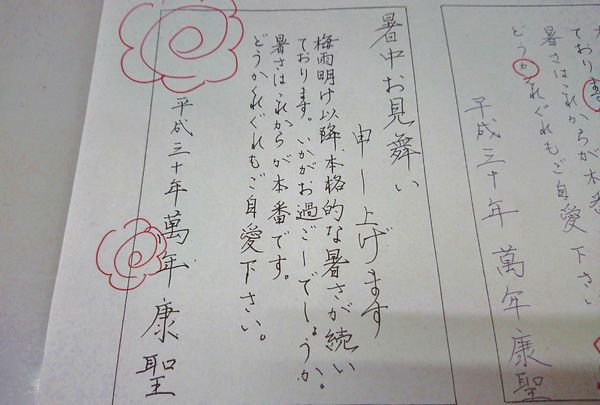 暑中お見舞い
申し上げます
梅雨明け以降、本格的な暑さが続い
ております。いかがお過ごしでしょうか。
暑さはこれからが本番です。
どうかくれぐれもご自愛下さい。
平成三十年 萬年 康聖
ております
暑さはこれからが本番
どうかくれぐれもご自愛下さい
平成三十年 萬年康聖